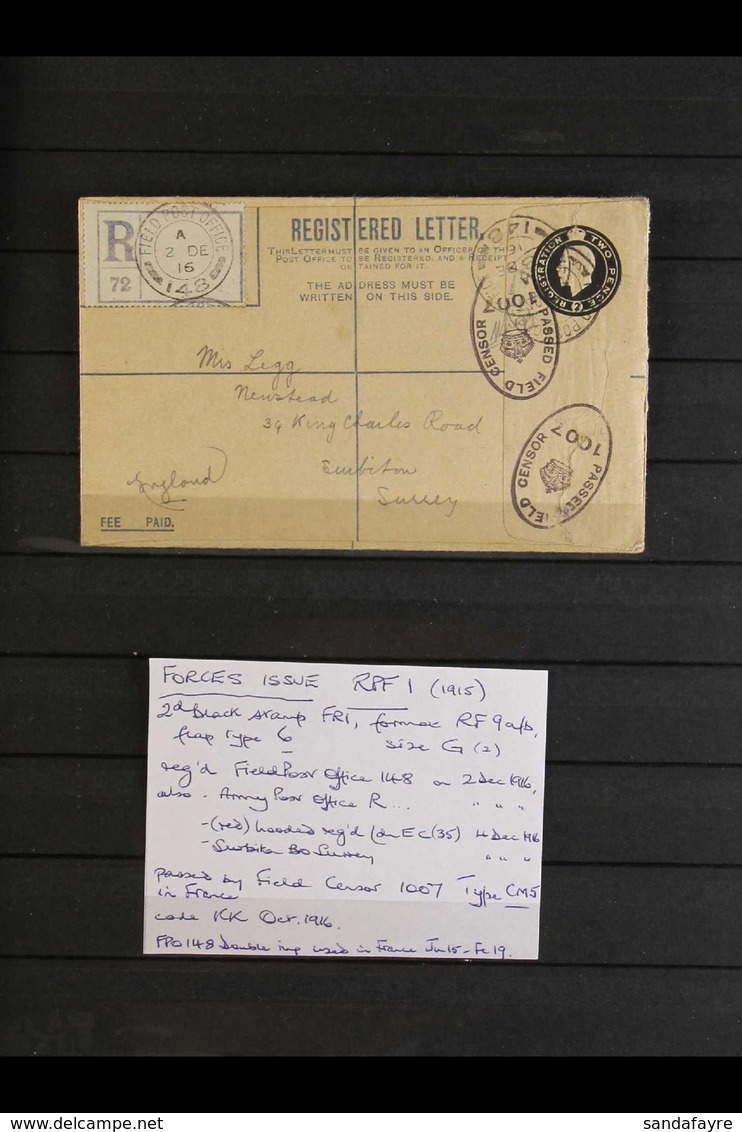 REGISTERED LETTER.
THIS LETTER MUST BE GIVEN TO AN OFFICER OF THE
POST OFFICE TO BE REGISTERED, AND A RECEIPT
OBTAINED FOR IT.
THE ADDRESS MUST BE
WRITTEN ON THIS SIDE.
R
72
FIELD POST OFFICE
A
2 DE
16
148
REGISTRATION TWO PENCE
2
148
PASSED FIELD CENSOR
1007
PASSED FIELD CENSOR
1007
Mrs Legg
Newstead
39 King Charles Road
Surbiton
Surrey
England
FEE PAID.
FORCES ISSUE RPF 1 (1915)
2d Black stamp FR1, format RF 9a/b,
flap type 6 size G (2)
reg'd Field Post Office 148 on 2 Dec 1916,
also - Army Post Office R... " " "
- (red) hooded reg'd Ldn EC (35) 4 Dec 1916
- Surbiton BO Surrey " " "
passed by Field Censor 1007 Type CM5
in France
code KK Oct. 1916.
FPO 148 Double ring used in France Ju 15 - Fe 19.
delcampe.net
sandafayre